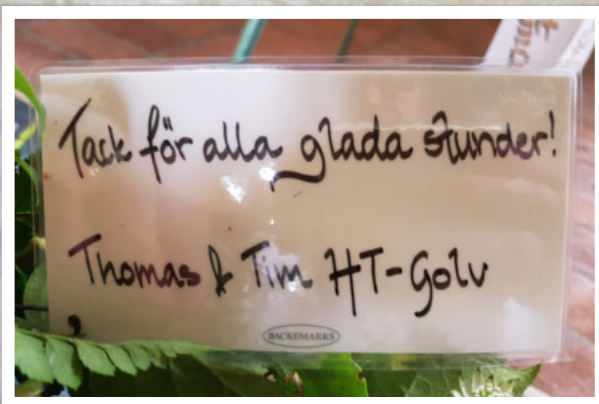 Tack för alla glada stunder!
Thomas & Tim HT-Golv
BACKEMARKS